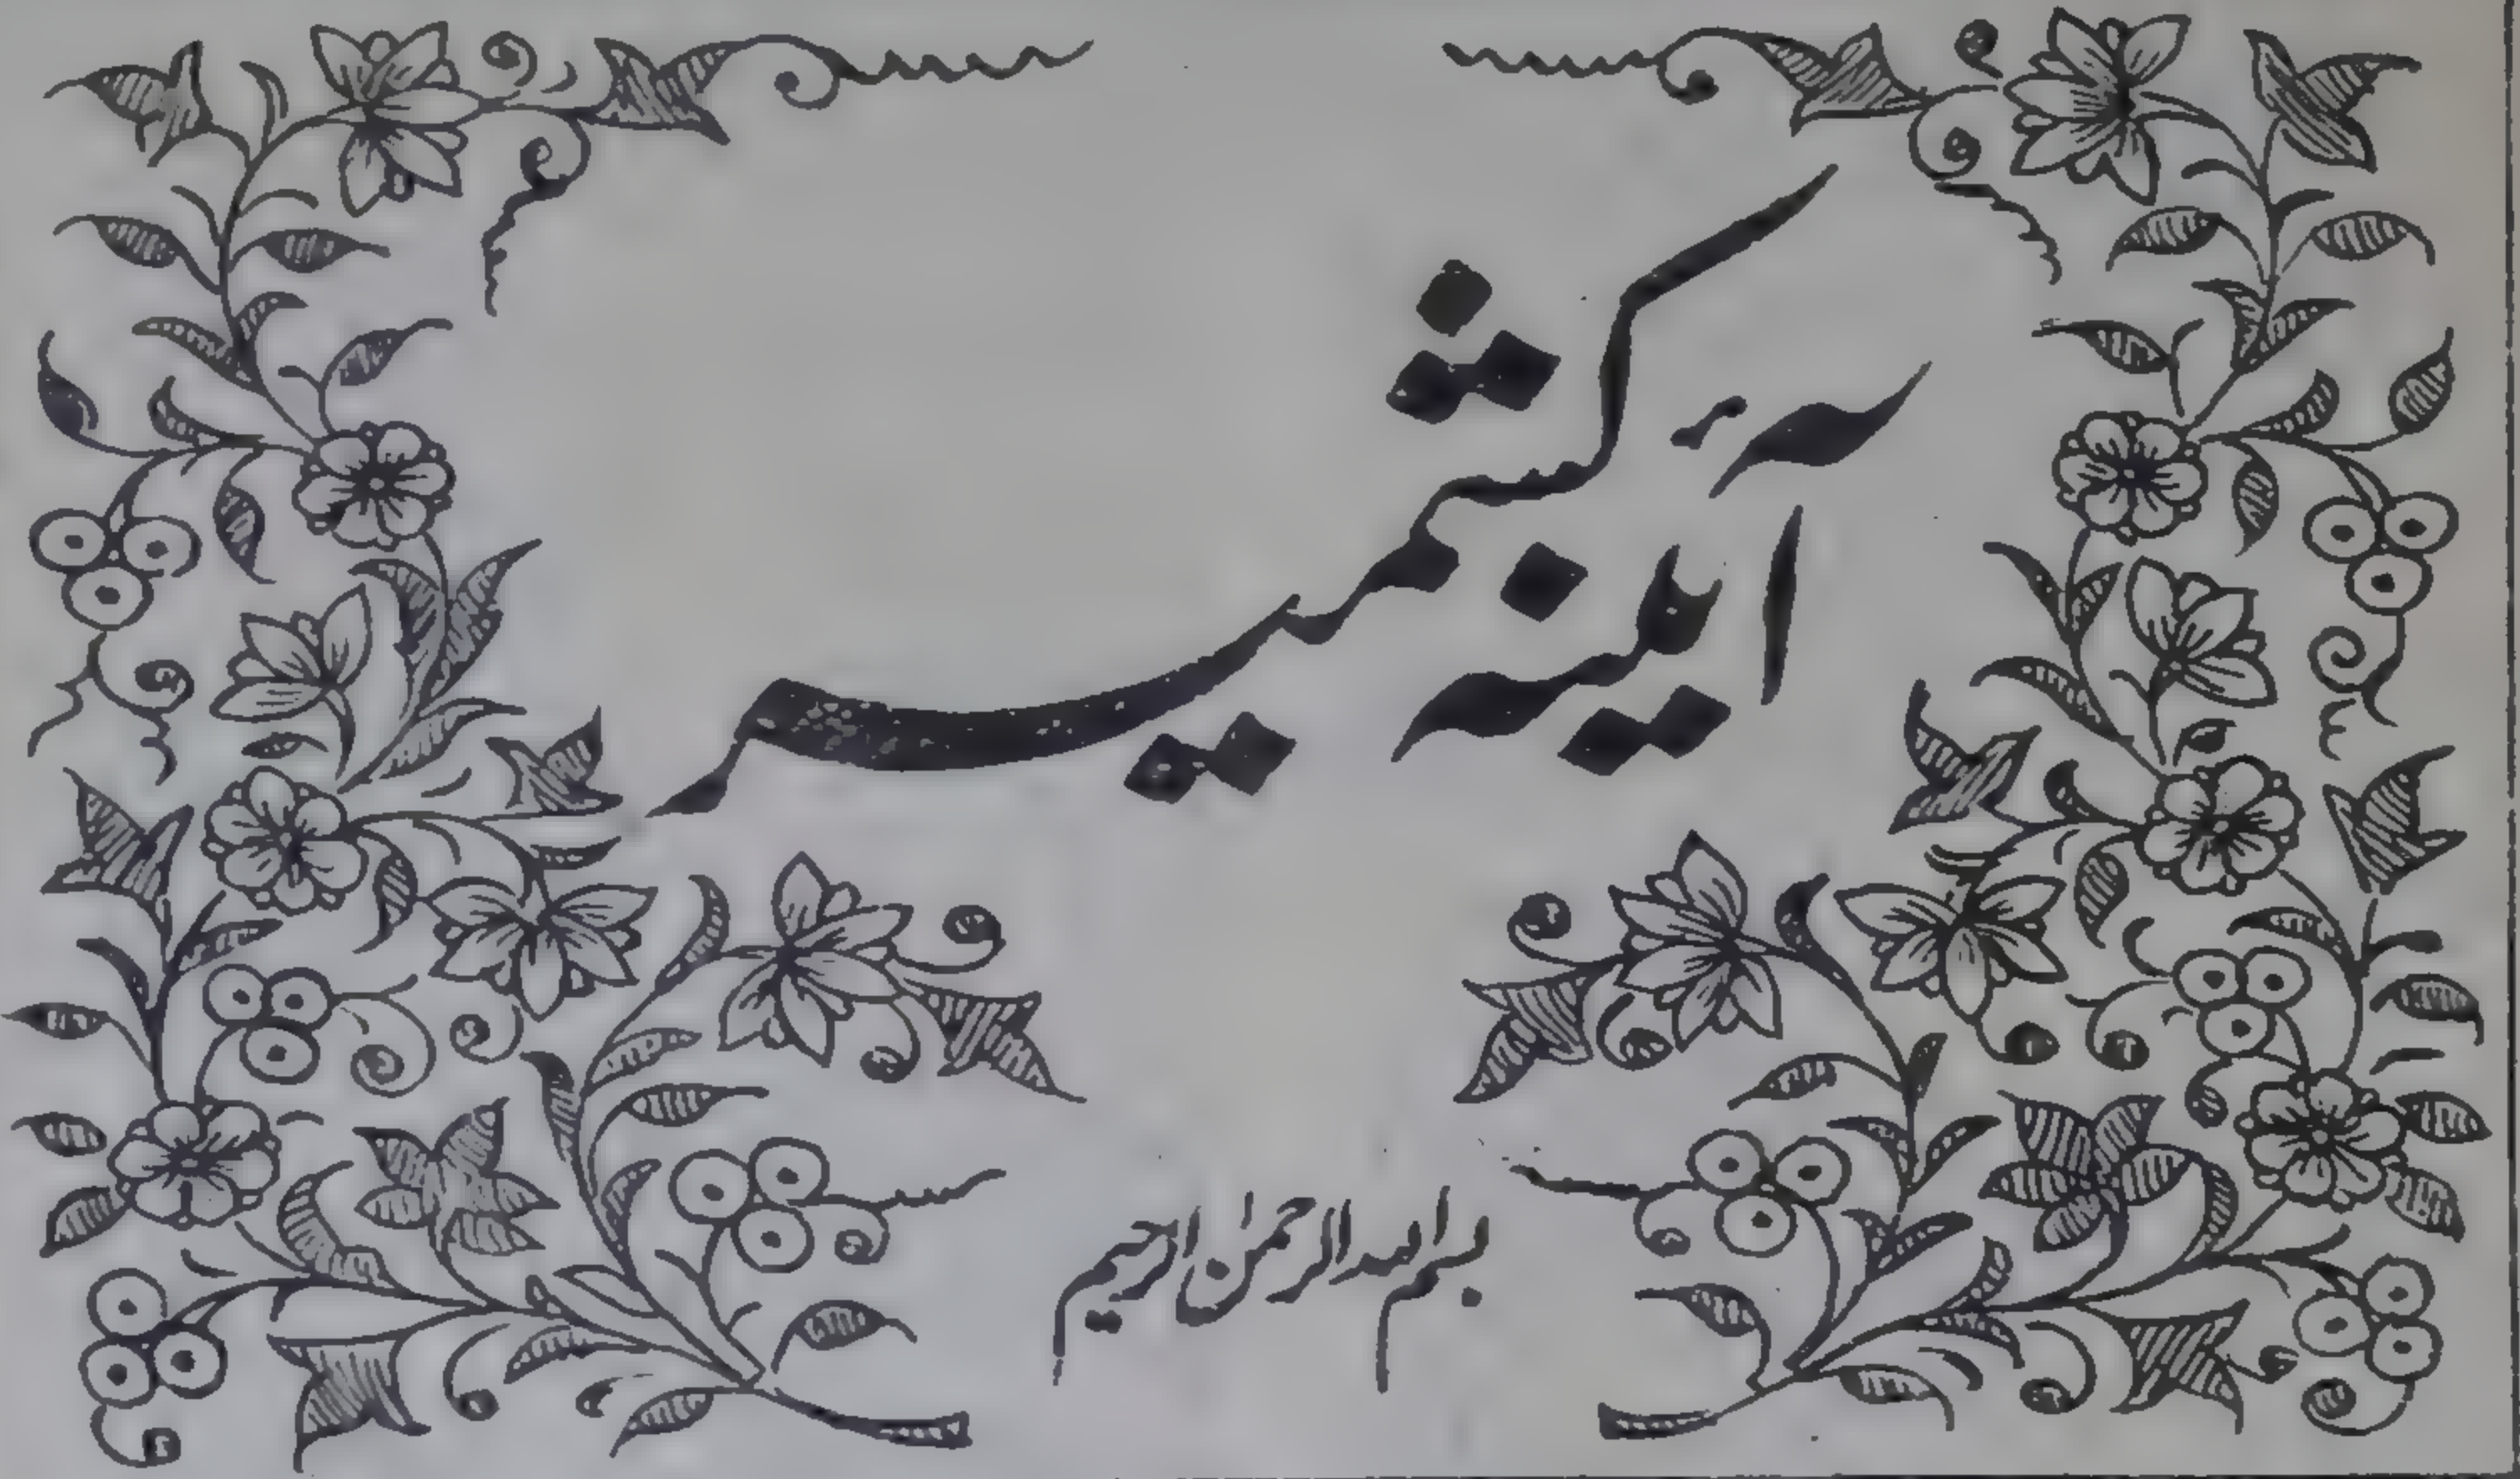 آئینہ کشمیر
بسم اللہ الرحمٰن الرحیم